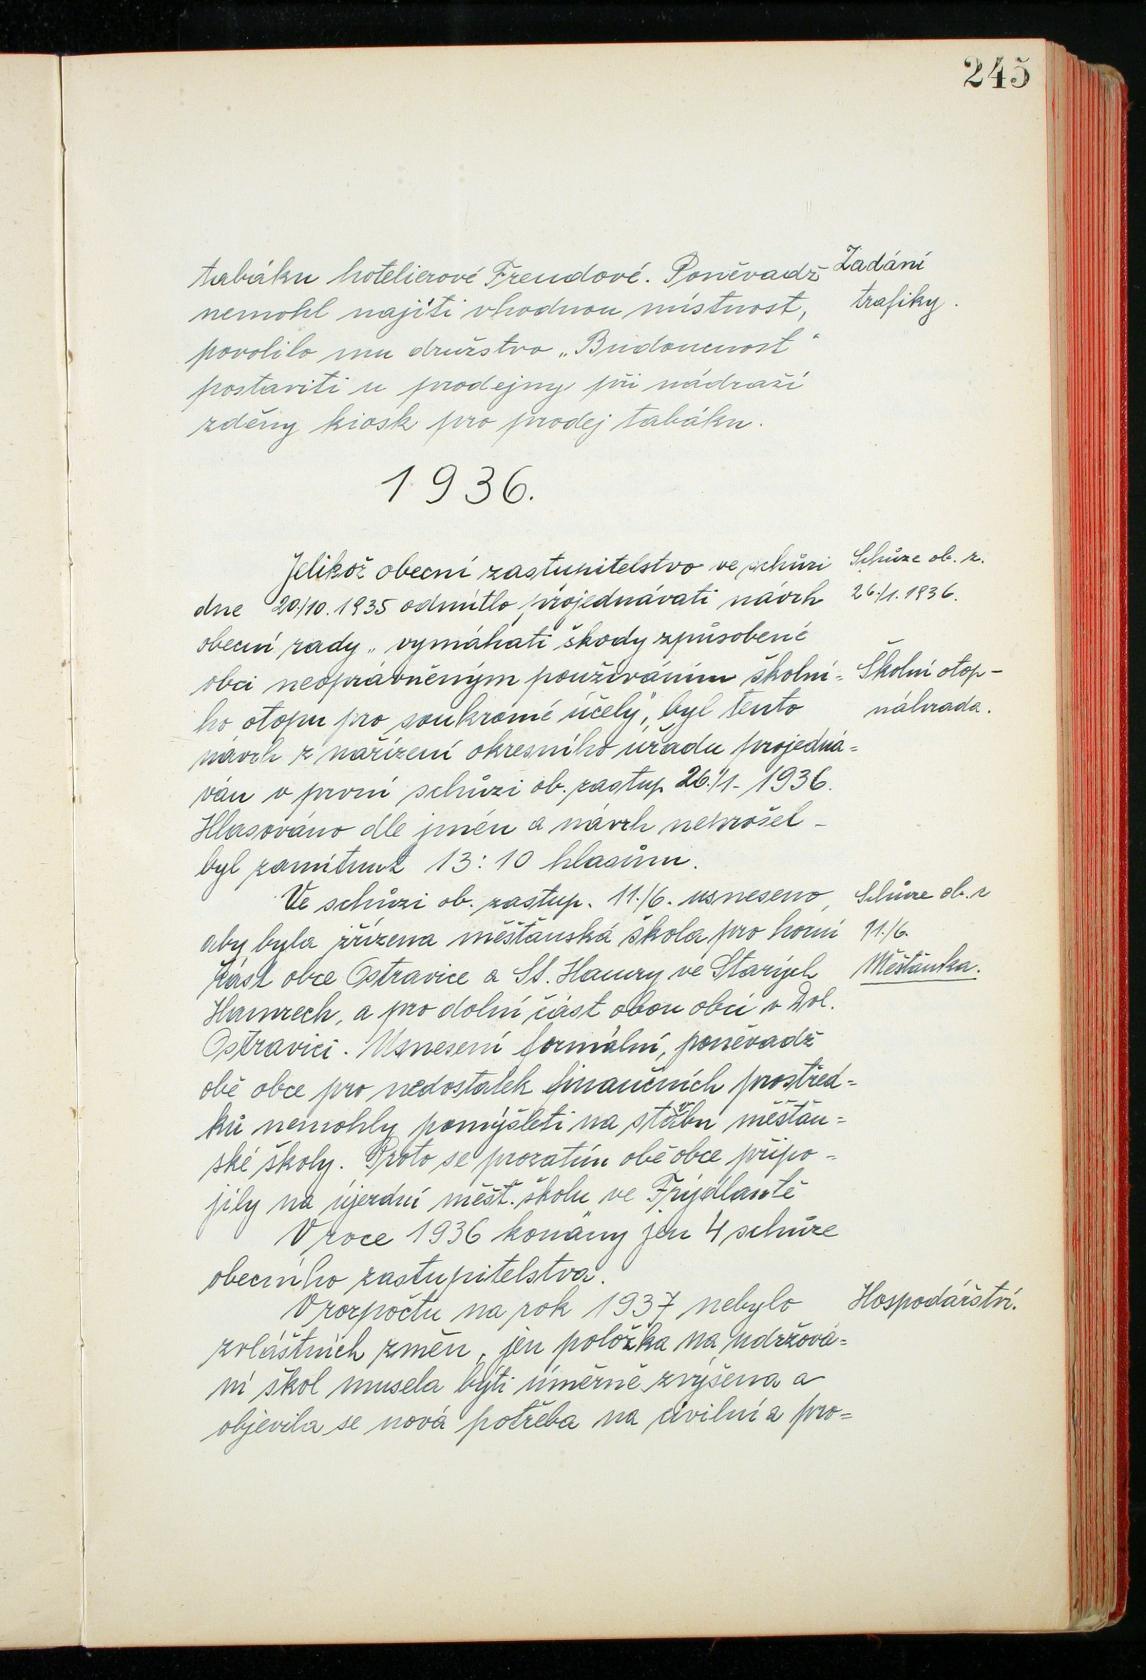 245
tabáku hotelierové Freudové. Poněvadž
Zadání
trafiky.
nemohl najíti vhodnou místnost,
povolilo mu družstvo „Budoucnost"
postaviti u prodejny při nádraží
zděný kiosk pro prodej tabáku.
1936.
Jelikož obecní zastupitelstvo ve schůzi
Schůze ob. z.
26./1. 1936.
dne 20/10. 1935 odmítlo projednávati návrh
obecní rady „vymáhati škody způsobené
obci neoprávněným používáním školní=
Školní otop –
náhrada.
ho otopu pro soukromé účely", byl tento
návrh z nařízení okresního úřadu projedná=
ván v první schůzi ob. zastup. 26./1. 1936.
Hlasováno dle jmén a návrh neprošel –
byl zamítnut 13:10 hlasům.
Ve schůzi ob. zastup. 11./6. usneseno,
Schůze ob. z
11./6.
Měšťanka.
aby byla zřízena měšťanská škola pro horní
část obce Ostravice a St. Hamry ve Starých
Hamrech, a pro dolní část obou obcí v Dol.
Ostravici. Usnesení formální, poněvadž
obě obce pro nedostatek finančních prostřed=
ků nemohly pomýšleti na stavbu měšťan=
ské školy. Proto se prozatím obě obce připo=
jily na újezdní měšť. školu ve Frýdlantě
V roce 1936 konány jen 4 schůze
obecního zastupitelstva.
V rozpočtu na rok 1937 nebylo
Hospodářství.
zvláštních změn, jen položka na udržová=
ní škol musela býti úměrně zvýšena a
objevila se nová potřeba na civilní a pro=